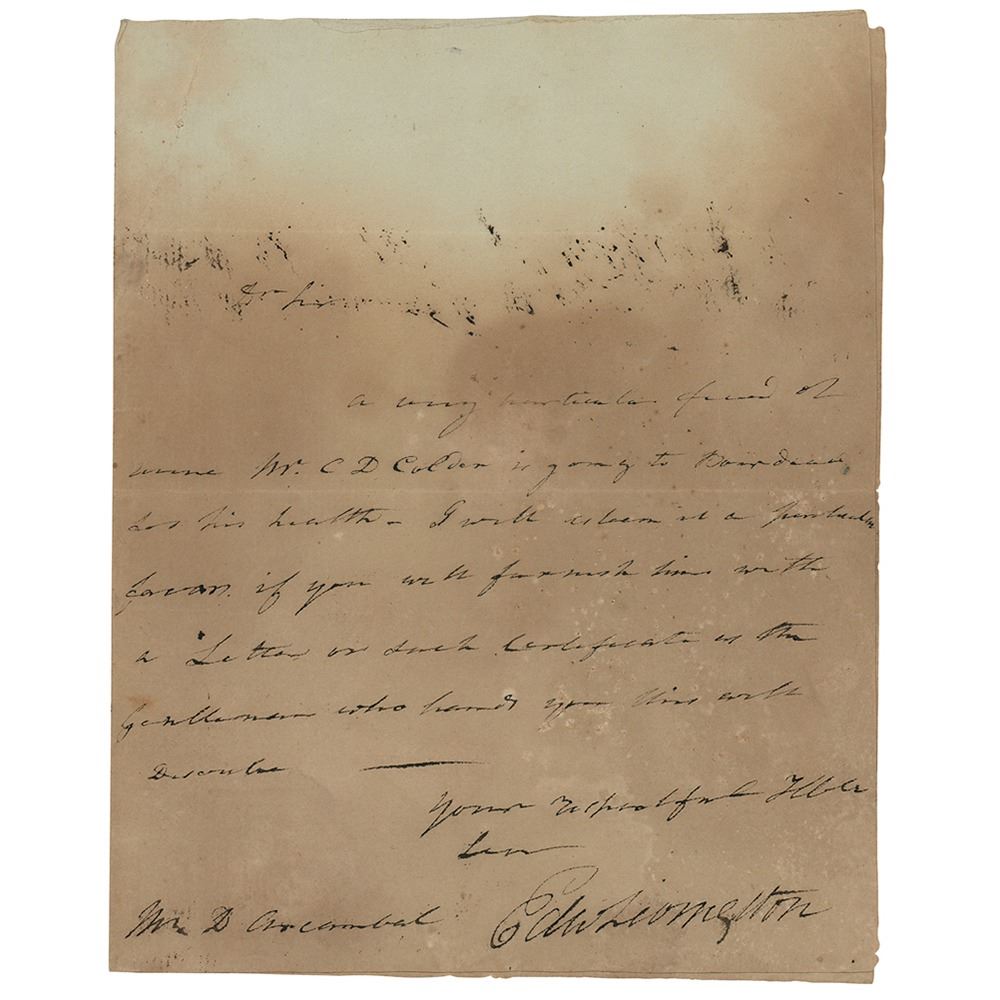 Dr Sir
a very particular friend of
mine Mr. C D Colden is going to Bourdeaux
for his health - I will esteem it a particular
favor if you will furnish him with
a Letter or such Certificate as the
Gentleman who hands you this will
Describe
Your respectful Hble
Ser
Edw Livingston
Mr D Arcambal